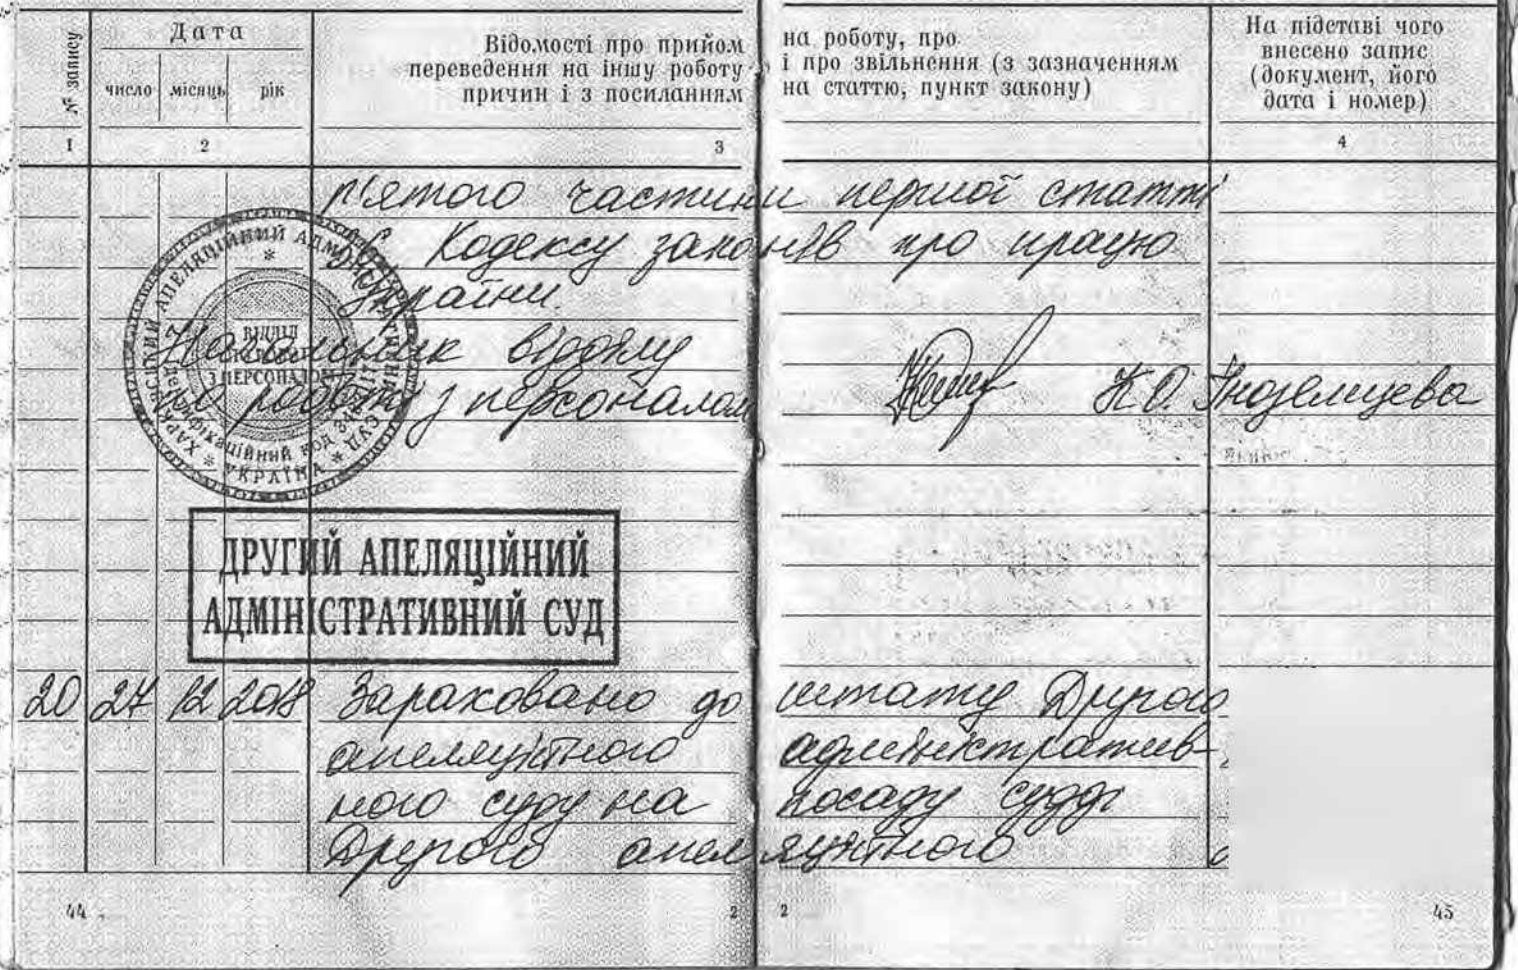 № запису
Дата
число
місяць
рік
Відомості про прийом
переведення на іншу роботу
причин і з посиланням
на роботу, про
і про звільнення (з зазначенням
на статтю, пункт закону)
На підставі чого
внесено запис
(документ, його
дата і номер)
1
2
3
4
п'ятого частини першої статті
36 Кодексу законів про працю
України.
Начальник відділу
по роботі з персоналом
К.О. Іноземцева
ХАРКІВСЬКИЙ АПЕЛЯЦІЙНИЙ АДМІНІСТРАТИВНИЙ СУД * УКРАЇНА *
Ідентифікаційний код
ВІДДІЛ
З ПЕРСОНАЛОМ
ДРУГИЙ АПЕЛЯЦІЙНИЙ
АДМІНІСТРАТИВНИЙ СУД
20 27 12 2018 Зараховано до штату Другого
апеляційного адміністратив-
ного суду на посаду судді
Другого апеляційного
44
2
2
45